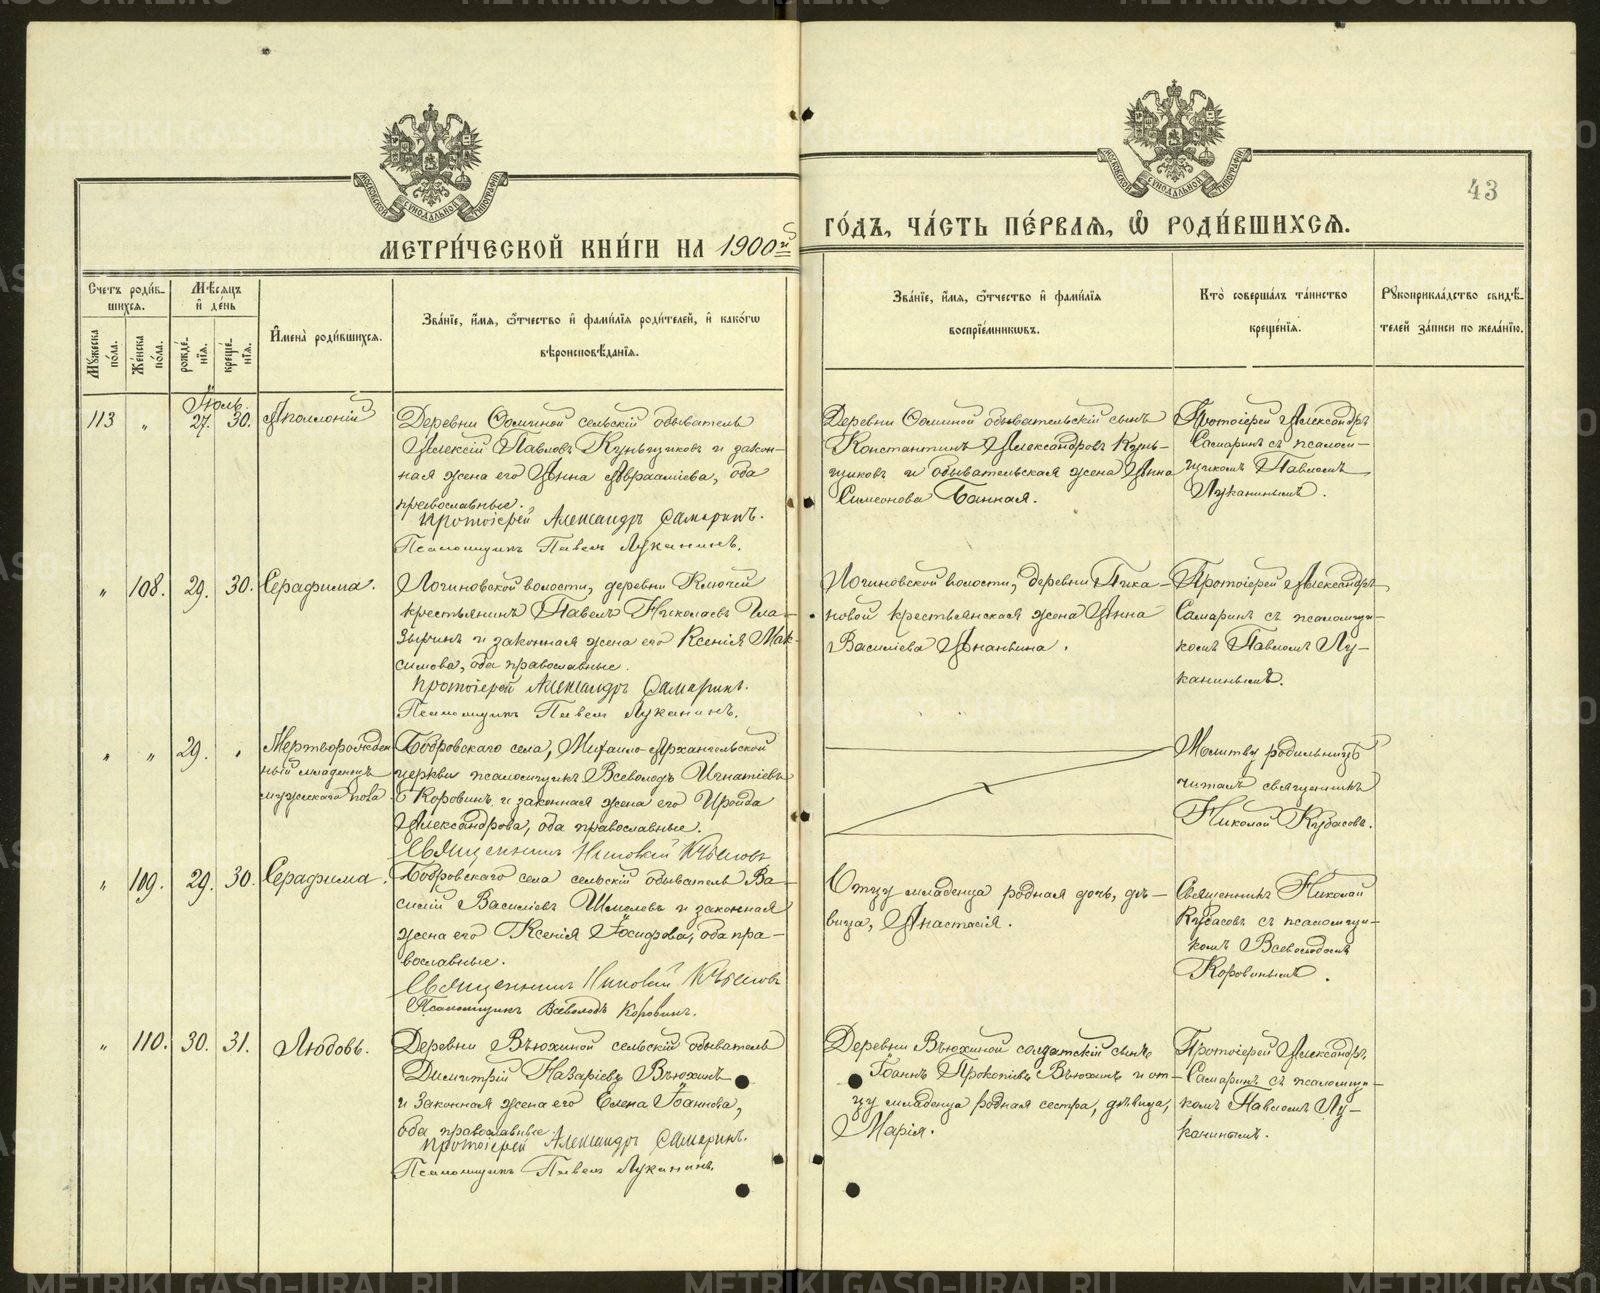 METRIKI.GASO-URAL.RU
43
МЕТРИ́ЧЕСКОЙ КНИ́ГИ НА 1900й
ГО́ДЪ, ЧА́СТЬ ПЕ́РВАѦ, Ѡ҆ РОДИ́ВШИХСѦ.
Счетъ роди́в-
шихсѧ.
Мѹжеска по́ла.
Же́нска по́ла.
Мѣ́сѧцъ
и҆ де́нь
рожде́-
нїѧ.
креще́-
нїѧ.
И҆мена̀ роди́вшихсѧ.
Зва́нїе, и҆́мѧ, ѻ҆́тчество и҆ фами́лїѧ роди́телей, и҆ како́гѡ
вѣроисповѣ́данїѧ.
Зва́нїе, и҆́мѧ, ѻ҆́тчество и҆ фами́лїѧ
воспрїе́мникѡвъ.
Кто̀ соверша́лъ та́инство
креще́нїѧ.
Рѹкоприкла́дство свидѣ́-
телей за́писи по жела́нїю.
Іюль.
113 „ 27. 30. Аполлоній
Деревни сельскій обыватель
Алексій Павловъ Куньщиковъ и закон-
ная жена его Анна Авраамiева, оба
православные.
Протоіерей Александръ Самаринъ.
Псаломщикъ Павелъ Луканинъ.
Деревни обывательскій сынъ
Константинъ Александровъ Кунь-
щиковъ и обывательская жена Анна
Симеонова Банная.
Протоіерей Александръ
Самаринъ съ псалом-
щикомъ Павломъ
Луканинымъ.
„ 108. 29. 30. Серафима.
Логиновской волости, деревни Ключей
крестьянинъ Павелъ Николаевъ Гла-
зыринъ и законная жена его Ксенія Мак-
симова, оба православные.
Протоіерей Александръ Самаринъ.
Псаломщикъ Павелъ Луканинъ.
Логиновской волости, деревни
новой крестьянская жена Анна
Василіева Ананьина.
Протоіерей Александръ
Самаринъ съ псаломщи-
комъ Павломъ Лу-
канинымъ.
„ „ 29. „ Мертворожден
ный младенецъ
мужескаго пола
Бобровскаго села, Михаило-Архангельской
церкви псаломщикъ Всеволодъ Игнатіевъ
Коровинъ и законная жена его Ираида
Александрова, оба православные.
Священникъ Николай Кубасовъ
Молитву родильницѣ
читалъ священникъ
Николай Кубасовъ.
„ 109. 29. 30. Серафима.
Бобровскаго села сельскій обыватель Ва-
силій Василіевъ Шмелевъ и законная
жена его Ксенія Іосифова, оба пра-
вославные.
Священникъ Николай Кубасовъ
Псаломщикъ Всеволодъ Коровинъ.
Отцу младенца родная дочь, дѣ-
вица, Анастасія.
Священникъ Николай
Кубасовъ съ псаломщи-
комъ Всеволодомъ
Коровинымъ.
„ 110. 30. 31. Любовь.
Деревни Вьюхиной сельскій обыватель
Димитрій Назаріевъ Вьюхинъ
и законная жена его Елена Іоаннова,
оба православные.
Протоіерей Александръ Самаринъ.
Псаломщикъ Павелъ Луканинъ.
Деревни Вьюхиной солдатскій сынъ
Іоаннъ Прокопіевъ Вьюхинъ и от-
цу младенца родная сестра, дѣвица,
Марія.
Протоіерей Александръ
Самаринъ съ псаломщи-
комъ Павломъ Лу-
канинымъ.